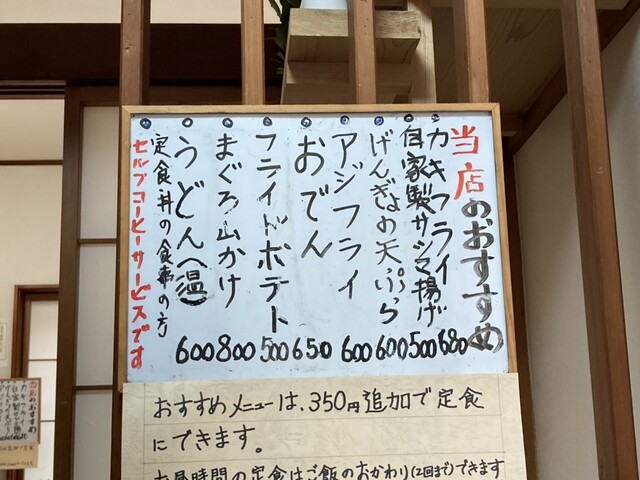 当店のおすすめ
カキフライ 680
自家製サツマ揚げ 500
げんぎょの天ぷら 600
アジフライ 600
おでん 650
フライドポテト 500
まぐろ山かけ 800
うどん(温) 600
定食丼の食事の方
セルフコーヒーサービスです
おすすめメニューは、350円追加で定食
にできます。
お昼時間の定食はご飯のおかわり(2回まで)できます